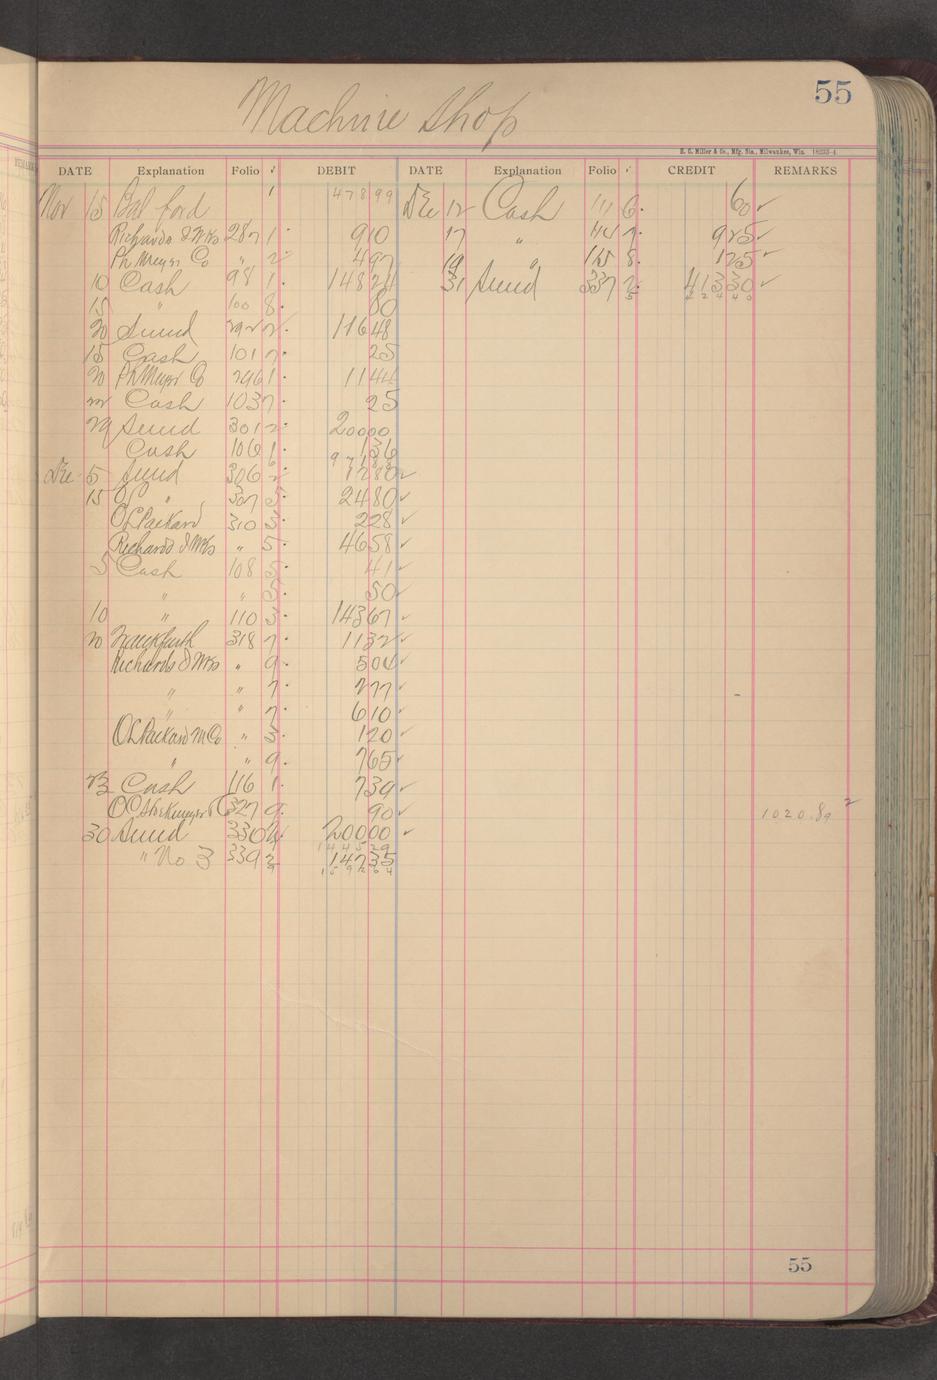 55
Machine Shop
E. C. Miller & Co., Mfg. Sta., Milwaukee, Wis.
DATE Explanation Folio ✓ DEBIT DATE Explanation Folio ✓ CREDIT REMARKS
Nov 15 Bal ford 478.99 Dec 12 Cash 111 6 · 60 ✓
Richards I Wks 287 1 · 910 17 " 7 · 925 ✓
Ph Meyer Co " 2 497 19 " 8 · 125 ✓
10 Cash 98 1 · 14824 31 Sund 337 2 · 41330 ✓
15 " 100 8 · 80 42440
20 Sund 292 2 · 11648
15 Cash 101 7 · 25
20 Ph Meyer Co 296 1 · 1144
22 Cash 103 7 · 25
29 Sund 301 2 · 20000
Cash 106 1 · 136
Dec 5 Sund 306 2 1280 ✓
15 " 307 5 · 2480 ✓
O L Packard 310 3 · 228 ✓
Richards I Wks " 5 · 4658 ✓
5 Cash 108 5 · 41 ✓
" " 5 · 50 ✓
10 " 110 3 · 14367 ✓
20 Frankfurth 318 7 · 1132 ✓
Richards I Wks " 9 · 504 ✓
" " 7 · 277 ✓
" " 7 · 610 ✓
O L Packard M Co " 3 · 120 ✓
" " 9 · 765 ✓
23 Cash 116 1 · 739 ✓
327 9 · 90 ✓ 1020.89
30 Sund 330 2 · 20000 ✓
144529
" No 3 339 2 14735
159264
55